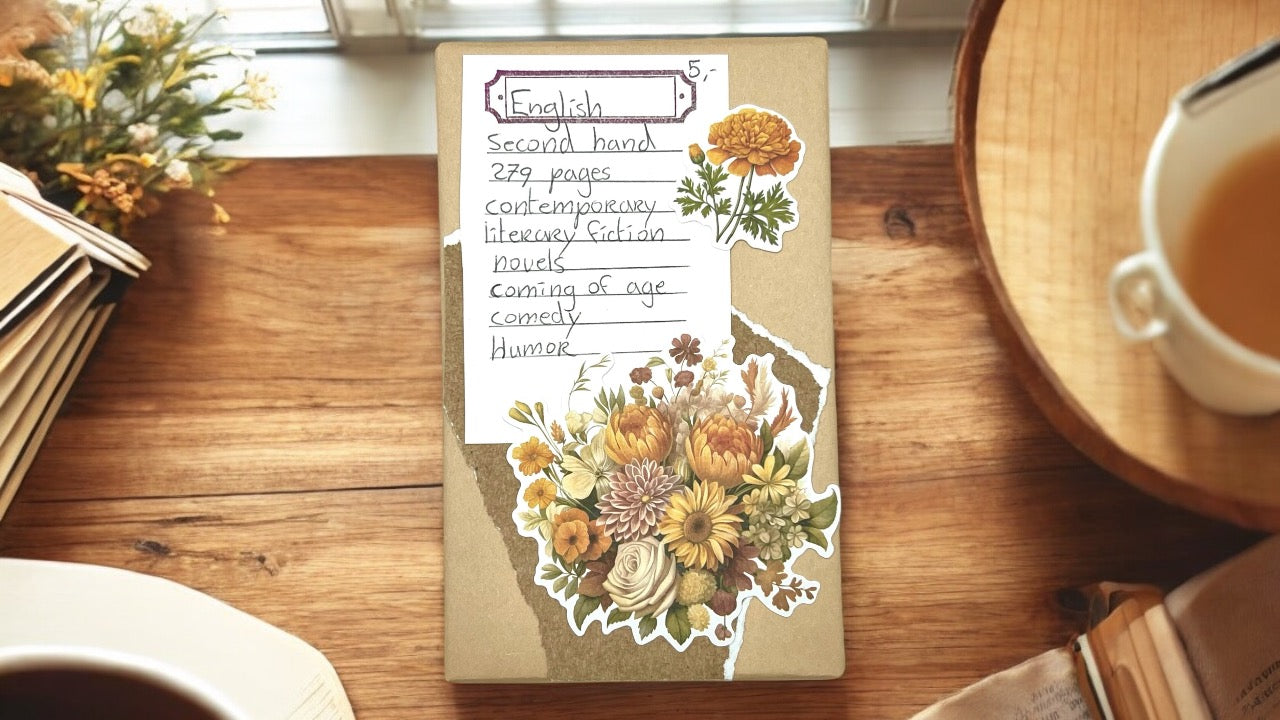 5,-
English
Second hand
279 pages
contemporary
literary fiction
novels
coming of age
comedy
Humor